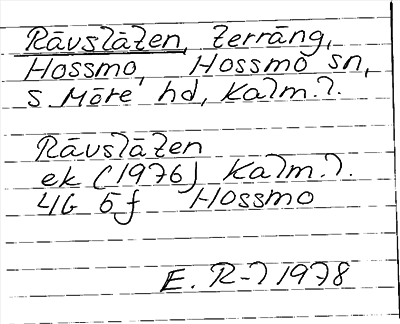 Rävsläten, terräng,
Hossmo, Hossmo sn,
S Möre hd, Kalm.l.
Rävsläten
ek (1976) Kalm.l.
4G 5f Hossmo
E. R-l 1978